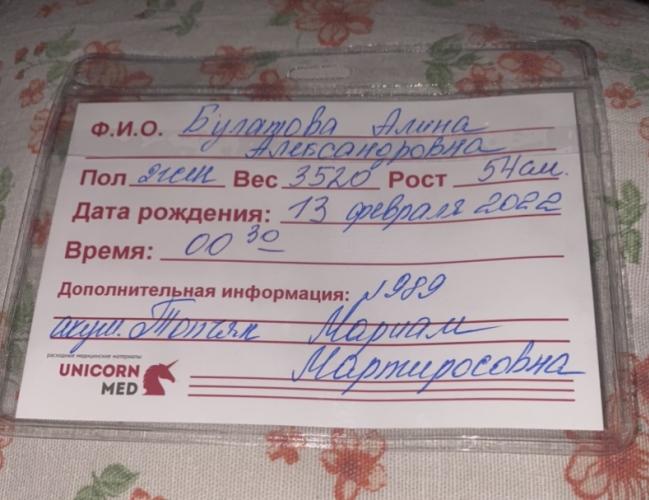 Ф.И.О. Булатова Алина
Александровна
Пол жен Вес 3520 Рост 54 см.
Дата рождения: 13 февраля 2022
Время: 00 30
Дополнительная информация: 1989
акуш. Мариам
Мартиросовна
расходные медицинские материалы
UNICORN
MED